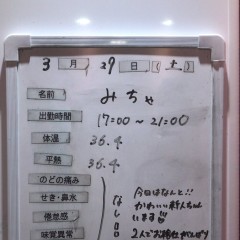 3月29日(土)
名前 みちゃ
出勤時間 17:00〜21:00
体温 36.4
平熱 36.4
のどの痛み
せき・鼻水
倦怠感
味覚異常
なし
今日はなんと!!
かわいい新人ちゃん
います
2人でお給仕がんばり